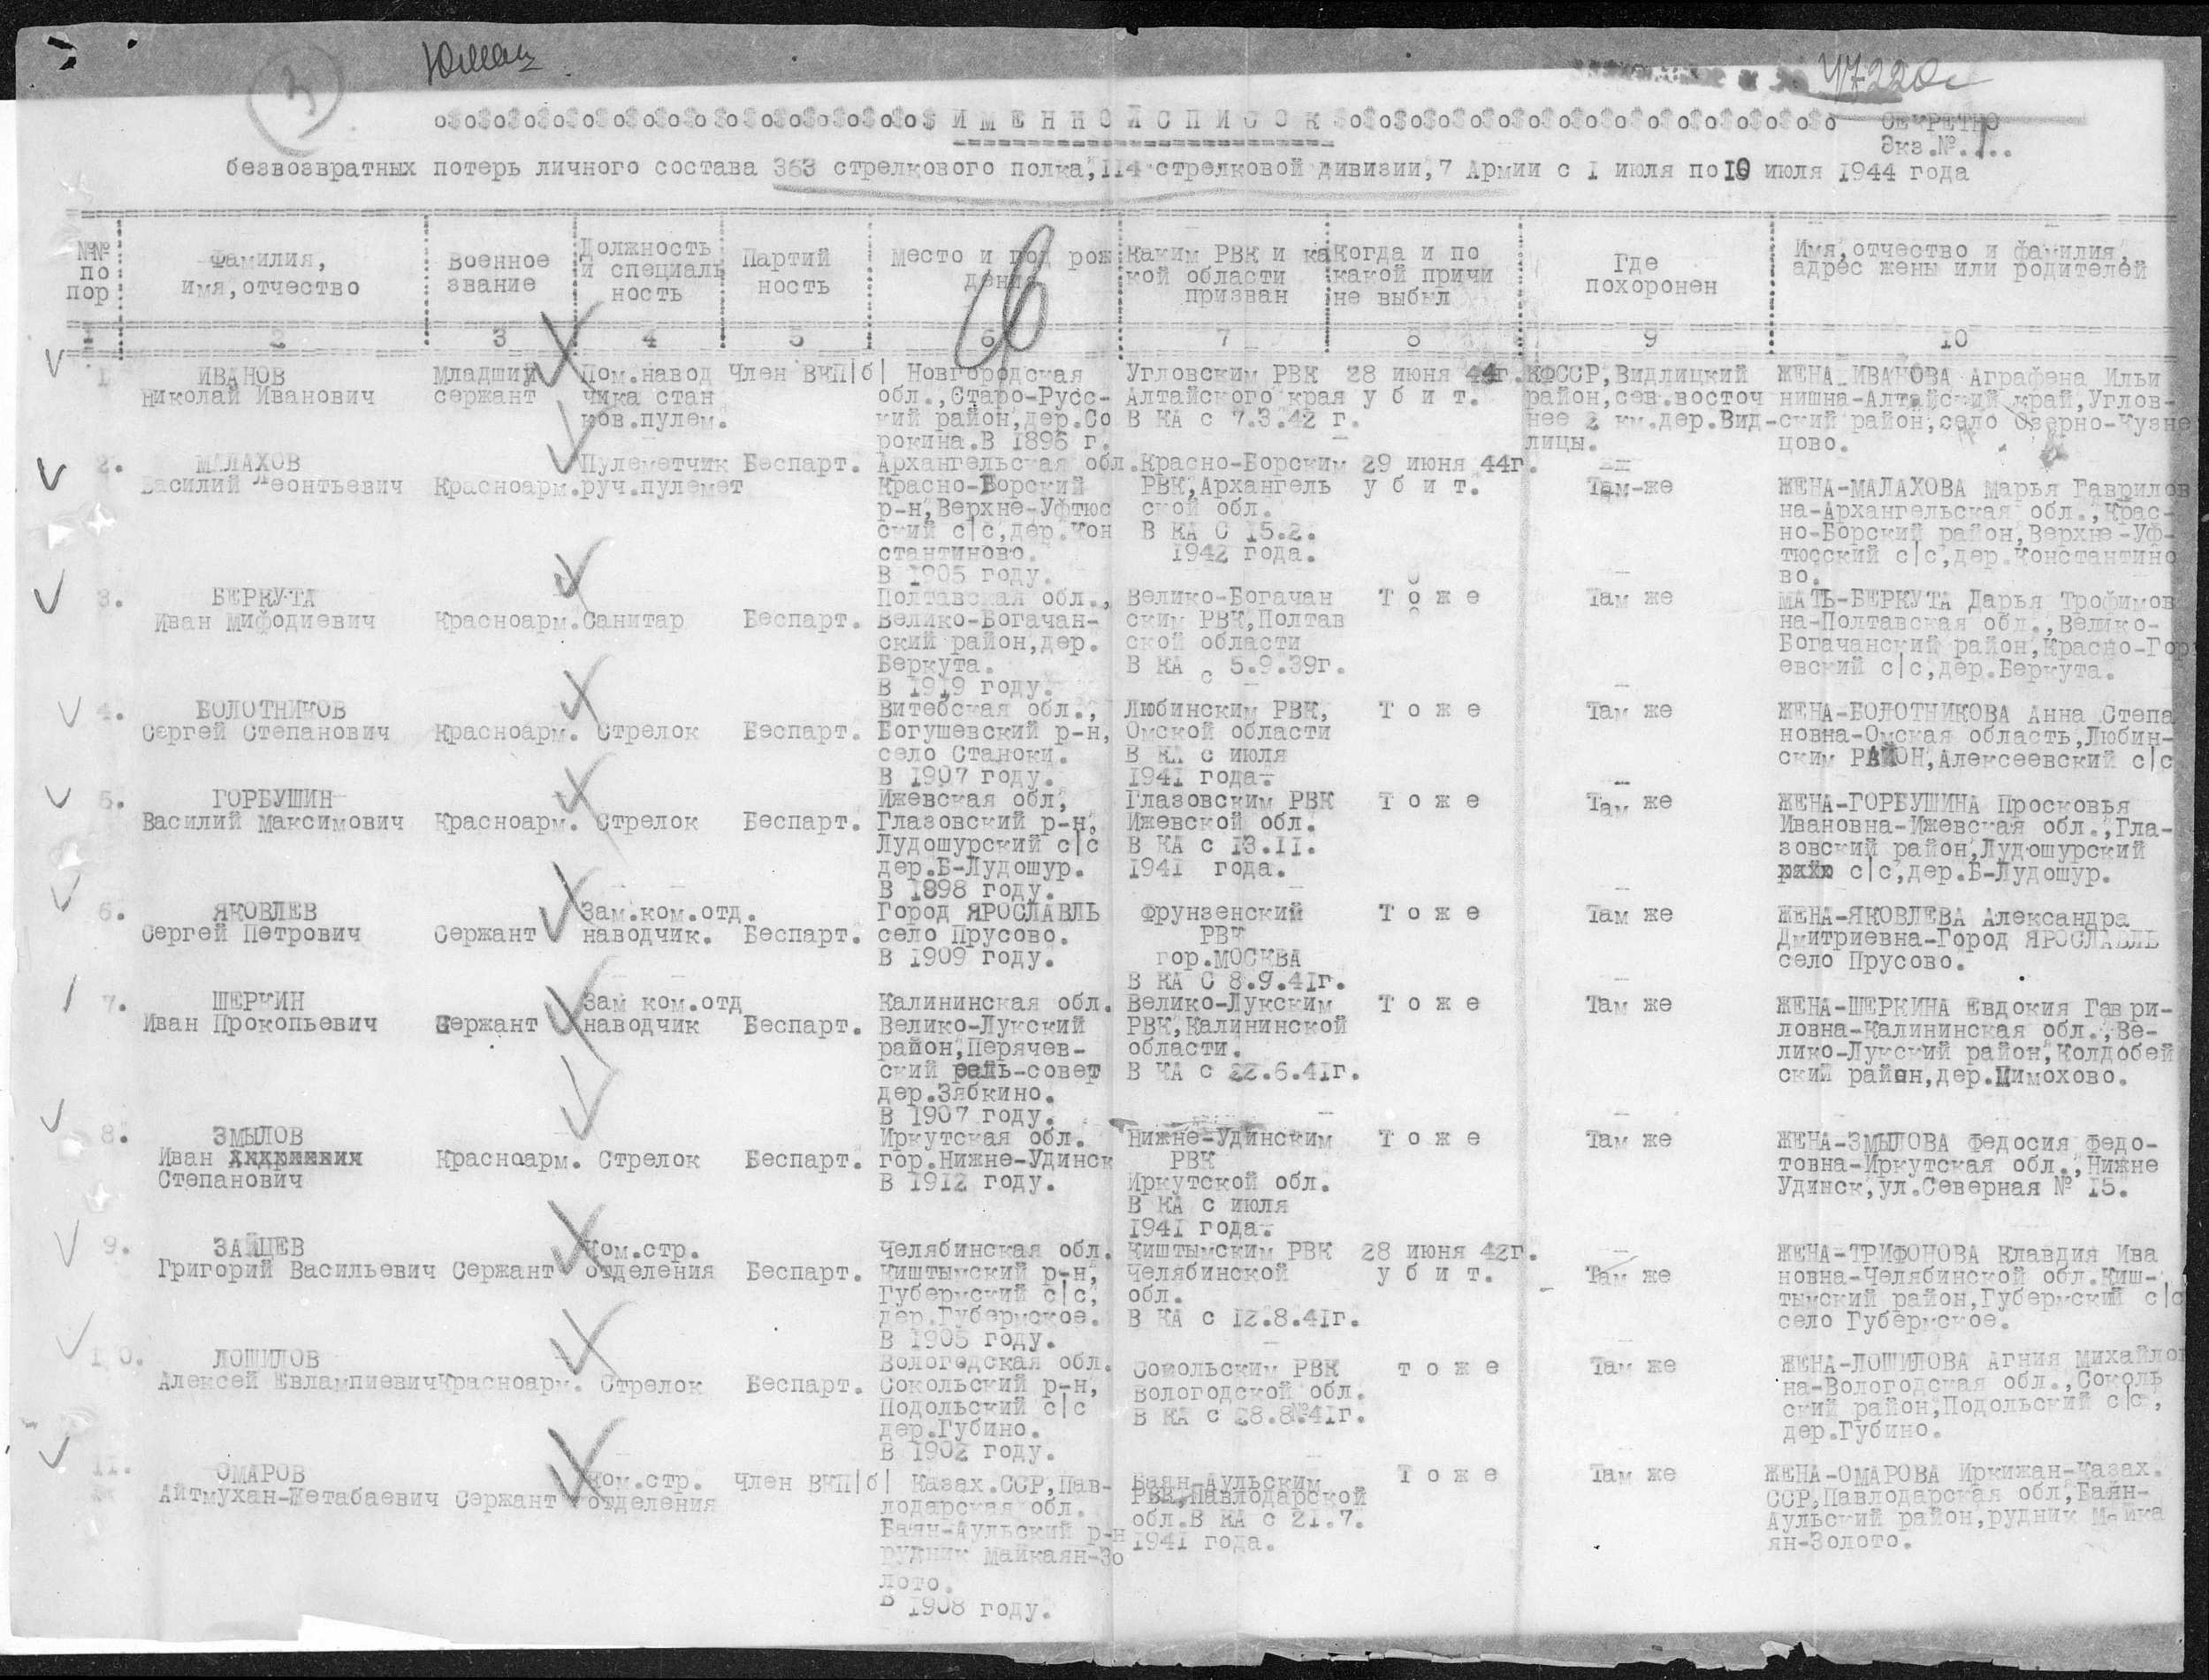 3
ИМЕННОЙ СПИСОК
СЕКРЕТНО
Экз.№.1..
безвозвратных потерь личного состава 363 стрелкового полка,114 стрелковой дивизии,7 Армии с I июля по 10 июля 1944 года
№№ по пор
Фамилия, имя,отчество
Военное звание
Должность и специаль ность
Партий ность
Место и год рож дения
Каким РВК и ка кой области призван
Когда и по какой причи не выбыл
Где похоронен
Имя,отчество и фамилия, адрес жены или родителей
1 2 3 4 5 6 7 8 9 10
6
1. ИВАНОВ Младший Пом.навод Член ВКП|б| Новгородская Угловским РВК 28 июня 44г. КФССР,Видлицкий ЖЕНА ИВАНОВА Аграфена Ильи
Николай Иванович сержант чика стан обл.,Старо-Русс- Алтайского края у б и т. район,сев.восточ нишна-Алтайский край,Углов-
ков.пулем. кий район,дер.Со В КА с 7.3.42 г. нее 2 км.дер.Вид- ский район,село Озерно-Кузне
рокина.В 1896 г. лицы. цово.
2. МАЛАХОВ Пулеметчик Беспарт. Архангельская обл. Красно-Борским 29 июня 44г.
Василий Леонтьевич Красноарм. руч.пулемет Красно-Борский РВК,Архангель у б и т. Там-же ЖЕНА-МАЛАХОВА Марья Гаврилов
р-н,Верхне-Уфтюс ской обл. на-Архангельская обл.,Крас-
ский с|с,дер.Кон В КА С 15.2. но-Борский район,Верхне-Уф-
стантиново. 1942 года. тюсский с|с,дер.Константино
В 1905 году. во.
3. БЕРКУТА Полтавская обл., Велико-Богачан Т о ж е Там же МАТЬ-БЕРКУТА Дарья Трофимов
Иван Мифодиевич Красноарм. Санитар Беспарт. Велико-Богачан- ским РВК,Полтав на-Полтавская обл.,Велико-
ский район,дер. ской области Богачанский район,Красно-Гор
Беркута. В КА с 5.9.39г. евский с|с,дер.Беркута.
В 1919 году.
4. БОЛОТНИКОВ Витебская обл., Любинским РВК, Т о ж е Там же ЖЕНА-БОЛОТНИКОВА Анна Степа
Сергей Степанович Красноарм. Стрелок Беспарт. Богушевский р-н, Омской области новна-Омская область,Любин-
село Станоки. В КА с июля ским РАЙОН,Алексеевский с|с
В 1907 году. 1941 года.
5. ГОРБУШИН Ижевская обл, Глазовским РВК Т о ж е Там же ЖЕНА-ГОРБУШИНА Просковья
Василий Максимович Красноарм. Стрелок Беспарт. Глазовский р-н, Ижевской обл. Ивановна-Ижевская обл.,Гла-
Лудошурский с|с В КА с 13.II. зовский район,Лудошурский
дер.Б-Лудошур. 1941 года. с|с,дер.Б-Лудошур.
В 1898 году.
6. ЯКОВЛЕВ Зам.ком.отд. Город ЯРОСЛАВЛЬ Фрунзенский Т о ж е Там же ЖЕНА-ЯКОВЛЕВА Александра
Сергей Петрович Сержант наводчик. Беспарт. село Прусово. РВК Дмитриевна-Город ЯРОСЛАВЛЬ
В 1909 году. гор.МОСКВА село Прусово.
В КА С 8.9.41г.
7. ШЕРКИН Зам ком.отд Калининская обл. Велико-Лукским Т о ж е Там же ЖЕНА-ШЕРКИНА Евдокия Гаври-
Иван Прокопьевич Сержант наводчик Беспарт. Велико-Лукский РВК,Калининской ловна-Калининская обл.,Ве-
район,Перячев- области. лико-Лукский район,Колдобей
ский сель-совет В КА с 22.6.41г. ский район,дер.Пимохово.
дер.Зябкино.
В 1907 году.
8. ЗМЫЛОВ Иркутская обл. Нижне-Удинским Т о ж е Там же ЖЕНА-ЗМЫЛОВА Федосия Федо-
Иван Красноарм. Стрелок Беспарт. гор.Нижне-Удинск РВК товна-Иркутская обл.,Нижне
Степанович В 1912 году. Иркутской обл. Удинск,ул.Северная № 15.
В КА с июля
1941 года.
9. ЗАЙЦЕВ Ком.стр. Челябинская обл. Киштымским РВК 28 июня 42г. ЖЕНА-ТРИФОНОВА Клавдия Ива
Григорий Васильевич Сержант отделения Беспарт. Киштымский р-н, Челябинской у б и т. Там же новна-Челябинской обл.Киш-
Губермский с|с, обл. тымский район,Губермский с|с
дер.Губермское. В КА с 12.8.41г. село Губермское.
В 1905 году.
10. ЛОШИЛОВ Вологодская обл. Сокольским РВК т о ж е Там же ЖЕНА-ЛОШИЛОВА Агния Михайлов
Алексей Евлампиевич Красноарм. Стрелок Беспарт. Сокольский р-н, Вологодской обл. на-Вологодская обл.,Соколь
Подольский с|с В КА с 28.8.41г. ский район,Подольский с|с,
дер.Губино. дер.Губино.
В 1902 году.
11. ОМАРОВ Ком.стр. Член ВКП|б| Казах.ССР,Пав- Баян-Аульским Т о ж е Там же ЖЕНА-ОМАРОВА Иркижан-Казах.
Айтмухан-Жетабаевич Сержант отделения лодарская обл. РВК,Павлодарской ССР,Павлодарская обл,Баян-
Баян-Аульский р-н обл.В КА с 21.7. Аульский район,рудник Майка
рудник Майкаян-Зо 1941 года. ян-Золото.
лото.
В 1908 году.